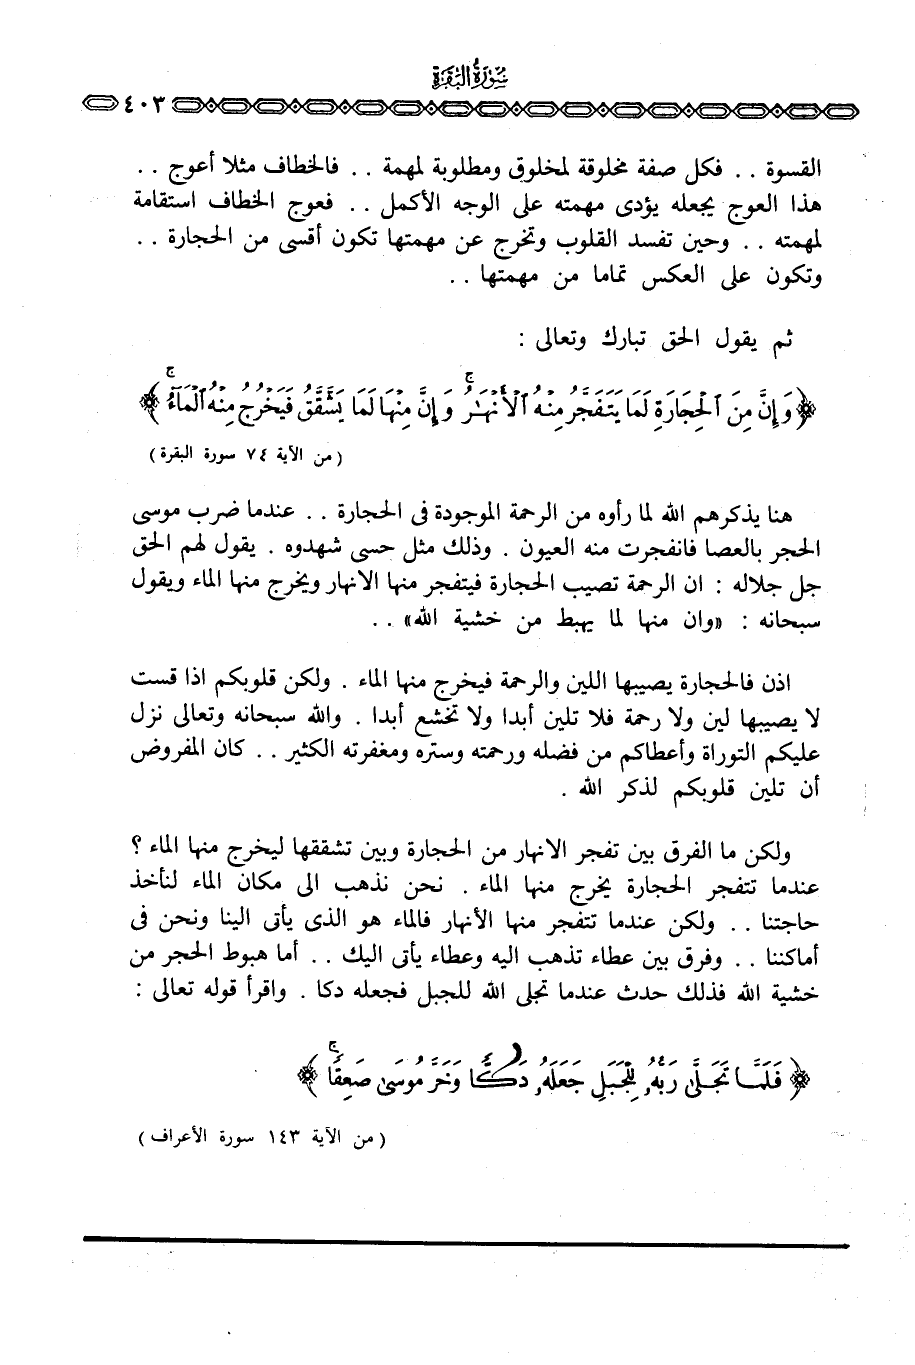 سُورَةُ البَقَرَةِ
٤٠٣
القسوة . . فكل صفة مخلوقة لمخلوق ومطلوبة لمهمة . . فالخطاف مثلا أعوج . .
هذا العوج يجعله يؤدى مهمته على الوجه الأكمل . . فعوج الخطاف استقامة
لمهمته . . وحين تفسد القلوب وتخرج عن مهمتها تكون أقسى من الحجارة . .
وتكون على العكس تماما من مهمتها . .
ثم يقول الحق تبارك وتعالى :
﴿ وَإِنَّ مِنَ ٱلْحِجَارَةِ لَمَا يَتَفَجَّرُ مِنْهُ ٱلْأَنْهَٰرُ ۚ وَإِنَّ مِنْهَا لَمَا يَشَّقَّقُ فَيَخْرُجُ مِنْهُ ٱلْمَآءُ ۚ ﴾
( من الآية ٧٤ سورة البقرة )
هنا يذكرهم الله لما رأوه من الرحمة الموجودة فى الحجارة . . عندما ضرب موسى
الحجر بالعصا فانفجرت منه العيون . وذلك مثل حسى شهدوه . يقول لهم الحق
جل جلاله : ان الرحمة تصيب الحجارة فيتفجر منها الانهار ويخرج منها الماء ويقول
سبحانه : «وان منها لما يهبط من خشية الله» . .
اذن فالحجارة يصيبها اللين والرحمة فيخرج منها الماء . ولكن قلوبكم اذا قست
لا يصيبها لين ولا رحمة فلا تلين أبدا ولا تخشع أبدا . والله سبحانه وتعالى نزل
عليكم التوراة وأعطاكم من فضله ورحمته وستره ومغفرته الكثير . . كان المفروض
أن تلين قلوبكم لذكر الله .
ولكن ما الفرق بين تفجر الانهار من الحجارة وبين تشققها ليخرج منها الماء ؟
عندما تتفجر الحجارة يخرج منها الماء . نحن نذهب الى مكان الماء لنأخذ
حاجتنا . . ولكن عندما تتفجر منها الأنهار فالماء هو الذى يأتى الينا ونحن فى
أماكننا . . وفرق بين عطاء تذهب اليه وعطاء يأتى اليك . . أما هبوط الحجر من
خشية الله فذلك حدث عندما تجلى الله للجبل فجعله دكا . واقرأ قوله تعالى :
﴿ فَلَمَّا تَجَلَّىٰ رَبُّهُۥ لِلْجَبَلِ جَعَلَهُۥ دَكًّا وَخَرَّ مُوسَىٰ صَعِقًا ۚ ﴾
( من الآية ١٤٣ سورة الأعراف )